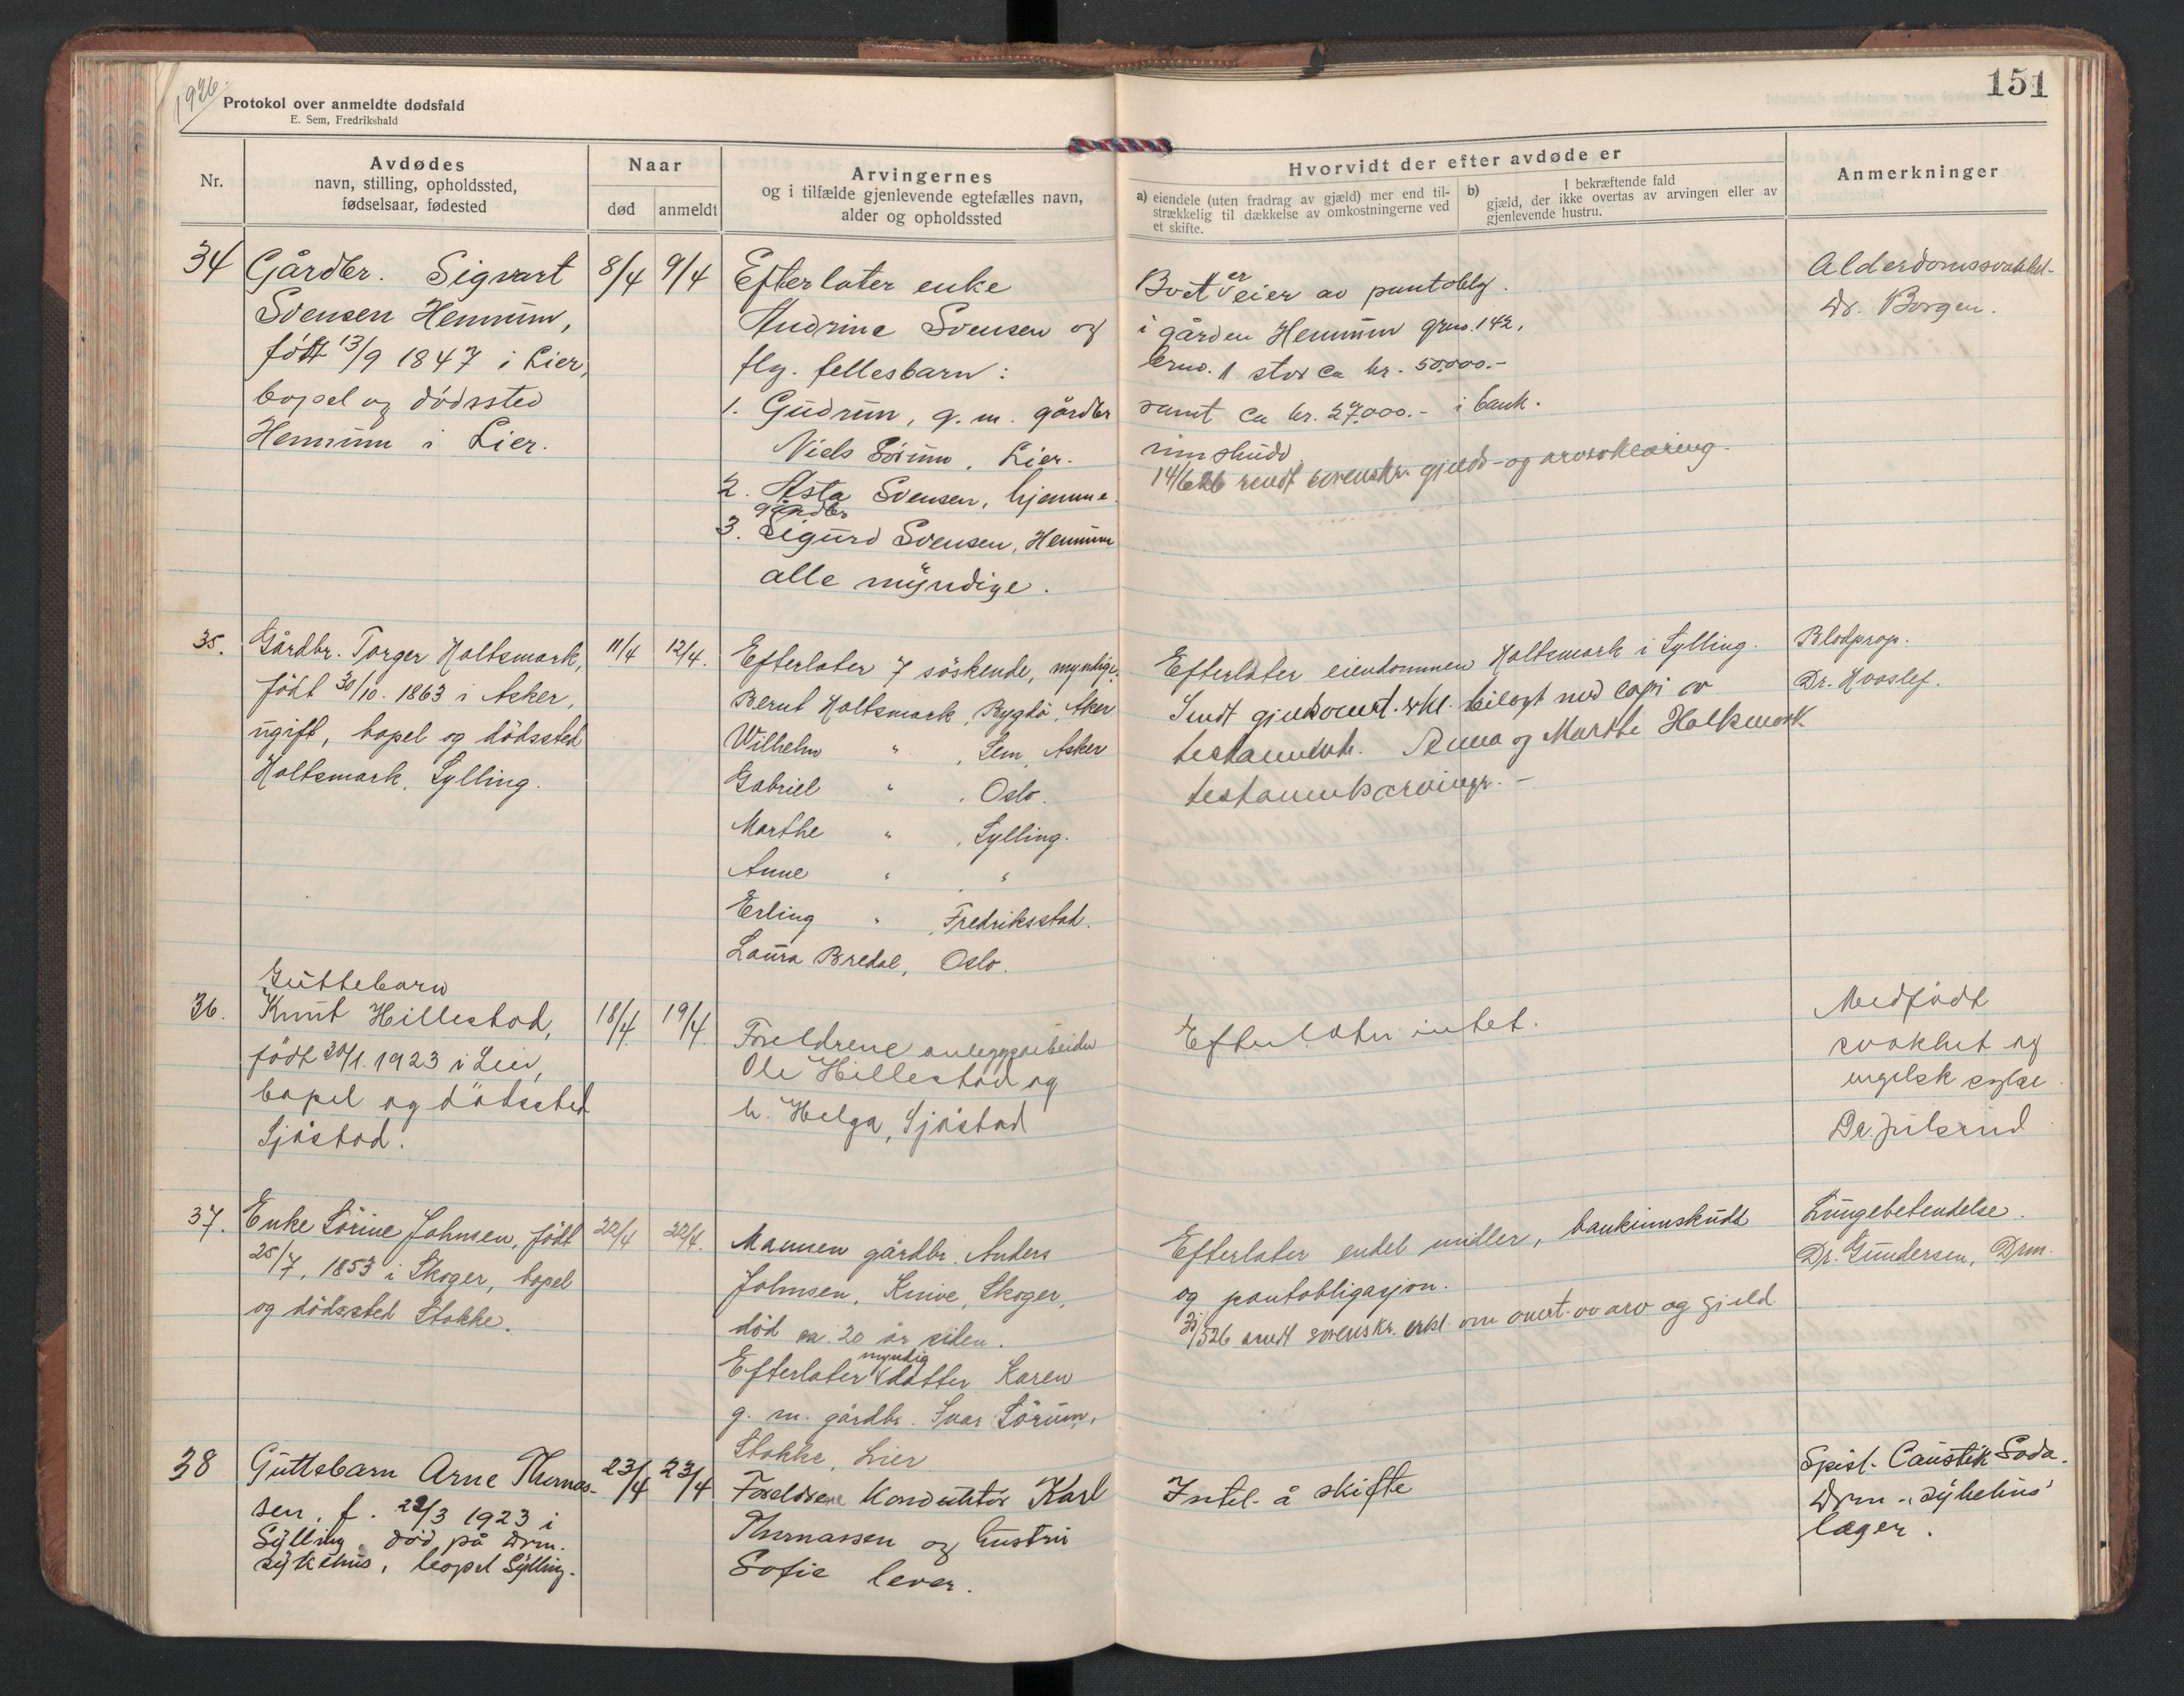 1926.
151
Protokol over anmeldte dødsfald
E. Sem, Fredrikshald
Nr.
Avdødes
navn, stilling, opholdssted,
fødselsaar, fødested
Naar
død
anmeldt
Arvingernes
og i tilfælde gjenlevende egtefælles navn,
alder og opholdssted
Hvorvidt der efter avdøde er
a) eiendele (uten fradrag av gjæld) mer end til-
strækkelig til dækkelse av omkostningerne ved
et skifte.
b) I bekræftende fald
gjæld, der ikke overtas av arvingen eller av
gjenlevende hustru.
Anmerkninger
34
Gårdbr. Sigvart
Svensen Hennum,
født 13/9 1847 i Lier,
bopel og dødssted
Hennum i Lier.
8/4
9/4
Efterlater enke
Andrine Svensen og
flg. fellesbarn:
1. Gudrun, g. m. gårdbr
Niels Sørum, Lier.
2. Asta Svensen, hjemme.
gårdbr
3. Sigurd Svensen, Hennum
alle myndige.
Boet er eier av pantoblg.
i gården Hennum grno. 142,
brno. 1 stor ca kr. 50.000.-
samt ca kr. 27.000.- i bank.
innskudd.
14/626 sendt sorenskr. gjelds- og arvserklæring.
Alderdomssvakhet-
Dr. Borgen.
35.
Gårdbr. Torger Holtsmark,
født 30/10. 1863 i Asker,
ugift, bopel og dödssted
Holtsmark, Sylling.
11/4
12/4.
Efterlater 7 söskende, myndige.
Bernt Holtsmark, Bygdö, Aker
Wilhelm " , Sem, Asker
Gabriel " , Oslo.
Marthe " , Sylling.
Anne " , "
Erling " , Fredriksstad.
Laura Bredal, Oslo.
Efterlater eiendommen Holtsmark i Sylling.
Sendt gjeldsovert. erkl. bilagt med copi av
testamente. Anna og Marthe Holtsmark
testamentsarvinger. -
Blodprop.
Dr. Hvoslef.
36.
Guttebarn
Knut Hillestad,
født 30/1. 1923 i Lier,
bopel og dødssted
Sjåstad.
18/4.
19/4.
Foreldrene anleggsarbeider
Ole Hillestad og
h. Helga, Sjåstad
Efterlater intet.
Medfødt
svakhet og
engelsk syke.
Dr. Julsrud
37.
Enke Sörine Johnsen, född
25/7, 1853 i Skoger, bopel
og dödssted Stokke.
22/4
22/4.
Mannen gårdbr. Anders
Johnsen, Knive, Skoger,
död ca. 20 år siden.
Efterlater myndig datter Karen
g. m. gårdbr. Ivar Sörum,
Stokke, Lier
Efterlater endel midler, bankinnskudd
og pantobligasjon.
31/526 sendt sorenskr. erkl. om overt. av arv og gjeld
Lungebetendelse.
Dr. Gundersen, Drm.
38
Guttebarn Arne Thomas-
sen, f. 22/3 1923 i
Sylling, død på Drm.
sykehus, bopel Sylling.
23/4
23/4
Foreldrene Konduktør Karl
Thomassen og hustru
Sofie lever.
Intet å skifte
Spist Caustik Soda.
Drm. sykehus'
læger.